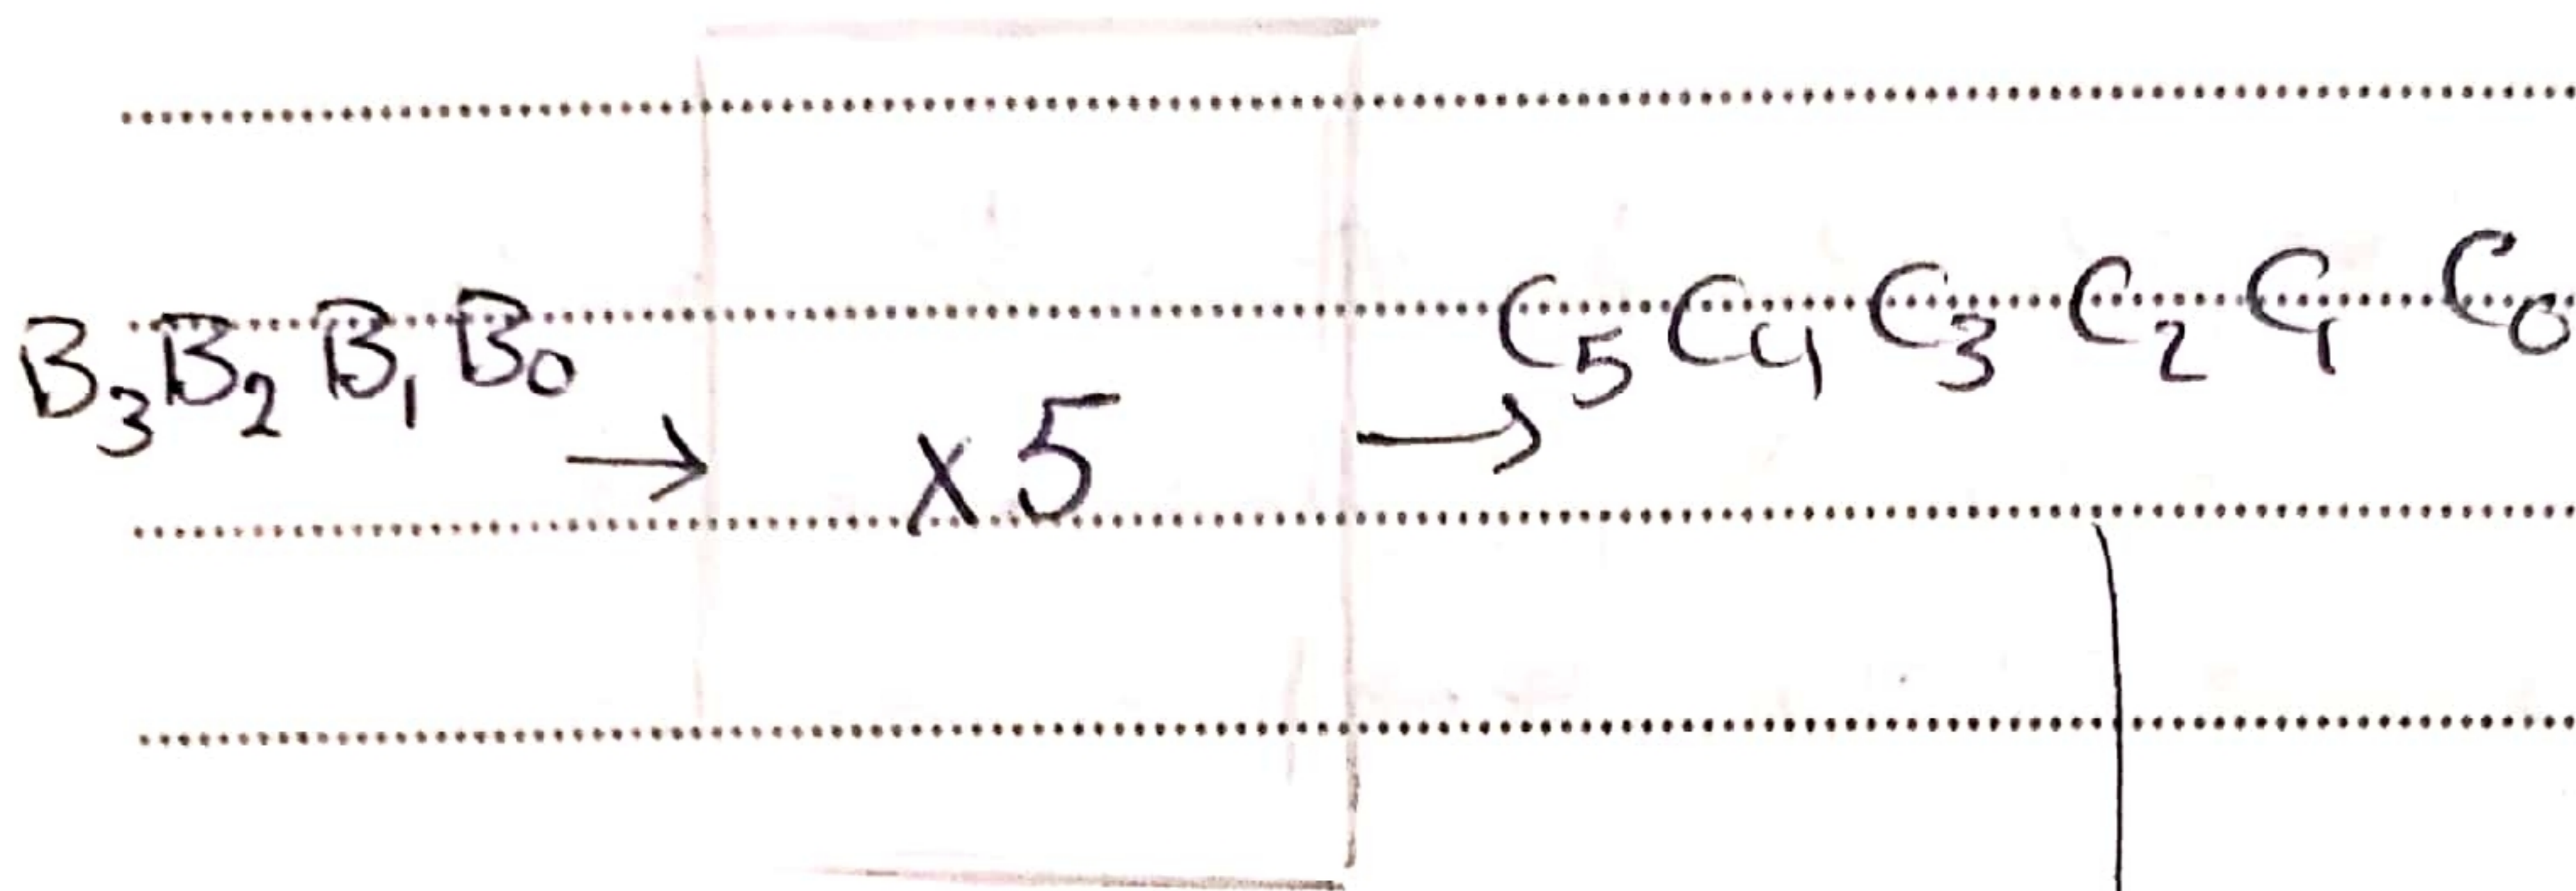 B₃B₂B₁B₀ → x5 → C₅C₄C₃C₂C₁C₀